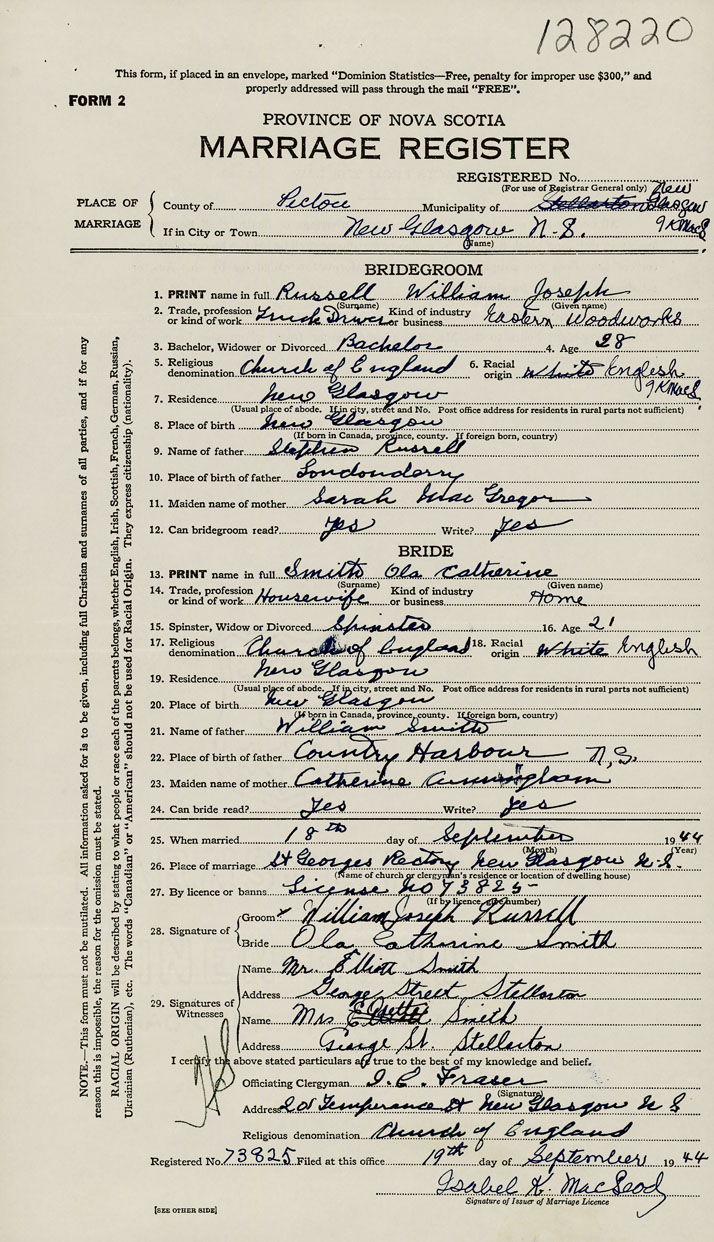 128220
This form, if placed in an envelope, marked "Dominion Statistics—Free, penalty for improper use $300," and
properly addressed will pass through the mail "FREE".
FORM 2
PROVINCE OF NOVA SCOTIA
MARRIAGE REGISTER
REGISTERED No.
(For use of Registrar General only)
PLACE OF MARRIAGE
County of Pictou Municipality of Stellarton New Glasgow
IKMacL
If in City or Town New Glasgow N.S.
(Name)
BRIDEGROOM
1. PRINT name in full Russell William Joseph
(Surname) (Given name)
2. Trade, profession or kind of work Truck Driver Kind of industry or business Eastern Woodworks
3. Bachelor, Widower or Divorced Bachelor 4. Age 28
5. Religious denomination Church of England 6. Racial origin White English
IKMacL
7. Residence New Glasgow
(Usual place of abode. If in city, street and No. Post office address for residents in rural parts not sufficient)
8. Place of birth New Glasgow
(If born in Canada, province, county. If foreign born, country)
9. Name of father Stephen Russell
10. Place of birth of father Londonderry
11. Maiden name of mother Sarah MacGregor
12. Can bridegroom read? yes Write? yes
BRIDE
13. PRINT name in full Smith Ola Catherine
(Surname) (Given name)
14. Trade, profession or kind of work Housewife Kind of industry or business Home
15. Spinster, Widow or Divorced Spinster 16. Age 21
17. Religious denomination Church of England 18. Racial origin White English
19. Residence New Glasgow
(Usual place of abode. If in city, street and No. Post office address for residents in rural parts not sufficient)
20. Place of birth New Glasgow
(If born in Canada, province, county. If foreign born, country)
21. Name of father William Smith
22. Place of birth of father Country Harbour N.S.
23. Maiden name of mother Catherine Cunningham
24. Can bride read? Yes Write? Yes
25. When married 18th day of September 1944
(Month) (Year)
26. Place of marriage St Georges Rectory New Glasgow N.S.
(Name of church or clergyman's residence or location of dwelling house)
27. By licence or banns License No 73825
(If by licence, give number)
28. Signature of
Groom William Joseph Russell
Bride Ola Catherine Smith
29. Signatures of Witnesses
Name Mr. Elliott Smith
Address George Street Stellarton
Name Mrs E Smith
Address George St. Stellarton
I certify the above stated particulars are true to the best of my knowledge and belief.
Officiating Clergyman Fraser
(Signature)
Address Temperance St New Glasgow N S
Religious denomination Church of England
Registered No. 73825 Filed at this office 19th day of September 1944
Isabel K. MacLeod
Signature of Issuer of Marriage Licence
[SEE OTHER SIDE]
NOTE.—This form must not be mutilated. All information asked for is to be given, including full Christian and surnames of all parties, and if for any
reason this is impossible, the reason for the omission must be stated.
RACIAL ORIGIN will be described by stating to what people or race each of the parents belongs, whether English, Irish, Scottish, French, German, Russian,
Ukrainian (Ruthenian), etc. The words "Canadian" or "American" should not be used for Racial Origin. They express citizenship (nationality).